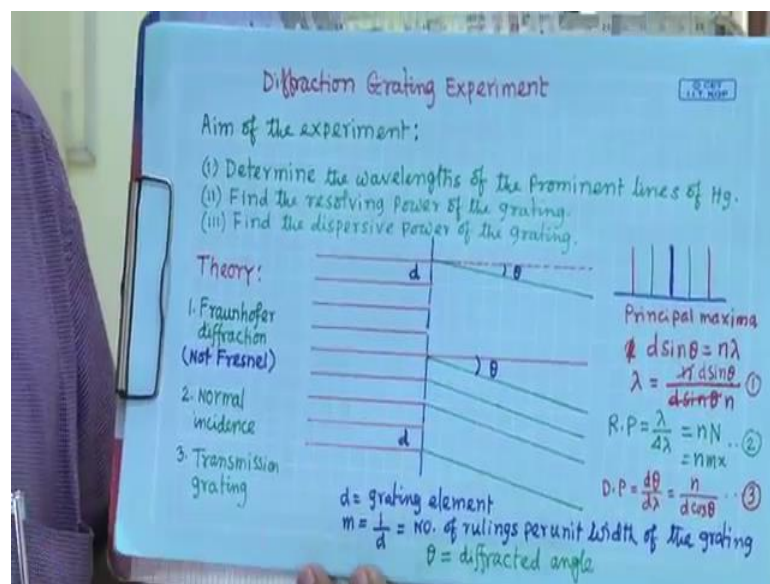 Diffraction Grating Experiment
© CET
I.I.T. KGP
Aim of the experiment:
(i) Determine the wavelengths of the Prominent lines of Hg.
(ii) Find the resolving Power of the grating.
(iii) Find the dispersive power of the grating.
Theory:
1. Fraunhofer
diffraction
(Not Fresnel)
2. Normal
incidence
3. Transmission
grating
d
θ
θ
d
Principal maxima
d sinθ = nλ
λ = d sinθ / n ①
R.P = λ/Δλ = nN .. ②
= nmx
D.P = dθ/dλ = n/d cosθ .. ③
d = grating element
m = 1/d = No. of rulings per unit width of the grating
θ = diffracted angle